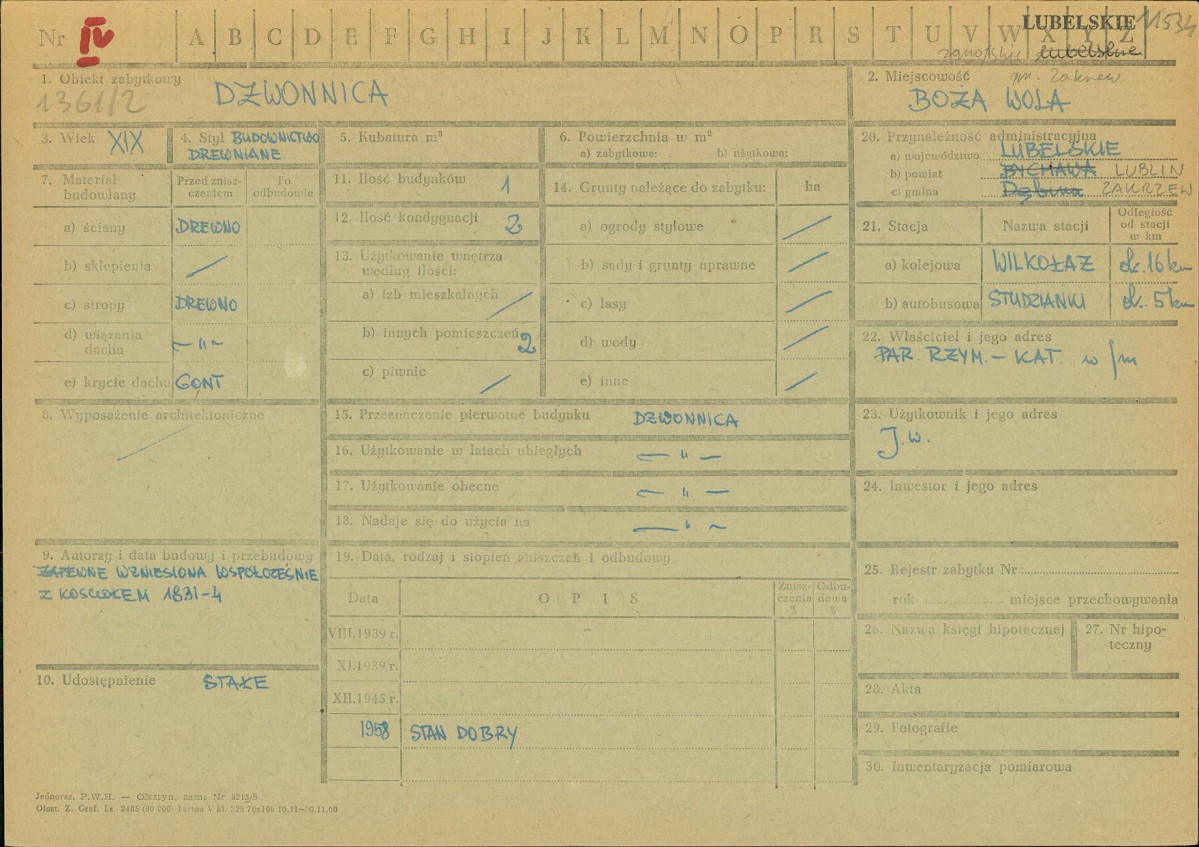 Nr IV A B C D E F G H I J K L M N O P R S T U V W X Y Z LUBELSKIE 11534
lubelskie
1. Obiekt zabytkowy
1361/2 DZWONNICA
2. Miejscowość gm. Zakrzew
BOŻA WOLA
3. Wiek XIX
4. Styl BUDOWNICTWO
DREWNIANE
5. Kubatura m³
6. Powierzchnia w m²
a) zabytkowa: b) użytkowa:
7. Materiał budowlany
Przed znisz-
czeniem
Po
odbudowie
a) ściany DREWNO
b) sklepienia /
c) stropy DREWNO
d) wiązania
dachu —„—
e) krycie dachu GONT
8. Wyposażenie architektoniczne
/
9. Autorzy i data budowy i przebudowy
ZAPEWNE WZNIESIONA WSPÓŁCZEŚNIE
Z KOŚCIOŁEM 1831-4
10. Udostępnienie STAŁE
11. Ilość budynków 1
12. Ilość kondygnacji 2
13. Użytkowanie wnętrza
według ilości:
a) izb mieszkalnych /
b) innych pomieszczeń 2
c) piwnic /
14. Grunty należące do zabytku: ha
a) ogrody stylowe /
b) sady i grunty uprawne /
c) lasy /
d) wody /
e) inne /
15. Przeznaczenie pierwotne budynku DZWONNICA
16. Użytkowanie w latach ubiegłych —„—
17. Użytkowanie obecne —„—
18. Nadaje się do użycia na —„—
19. Data, rodzaj i stopień zniszczeń i odbudowy
Data O P I S
Znisz-
czenia
%
Odbu-
dowa
%
VIII.1939 r.
XI.1939 r.
XII.1945 r.
1958 STAN DOBRY
20. Przynależność administracyjna
a) województwo LUBELSKIE
b) powiat BYCHAWA LUBLIN
c) gmina Dębina ZAKRZEW
21. Stacja Nazwa stacji
Odległość
od stacji
w km
a) kolejowa WILKOŁAZ ok. 16 km
b) autobusowa STUDZIANKI ok. 5 km
22. Właściciel i jego adres
PAR. RZYM. - KAT. w/m
23. Użytkownik i jego adres
J.w.
24. Inwestor i jego adres
25. Rejestr zabytku Nr
rok miejsce przechowywania
26. Nazwa księgi hipotecznej
27. Nr hipo-
teczny
28. Akta
29. Fotografie
30. Inwentaryzacja pomiarowa
Jednoraz. P.W.H. — Olsztyn, zam. Nr 3215/S
Olszt. Z. Graf. Lz. 2485